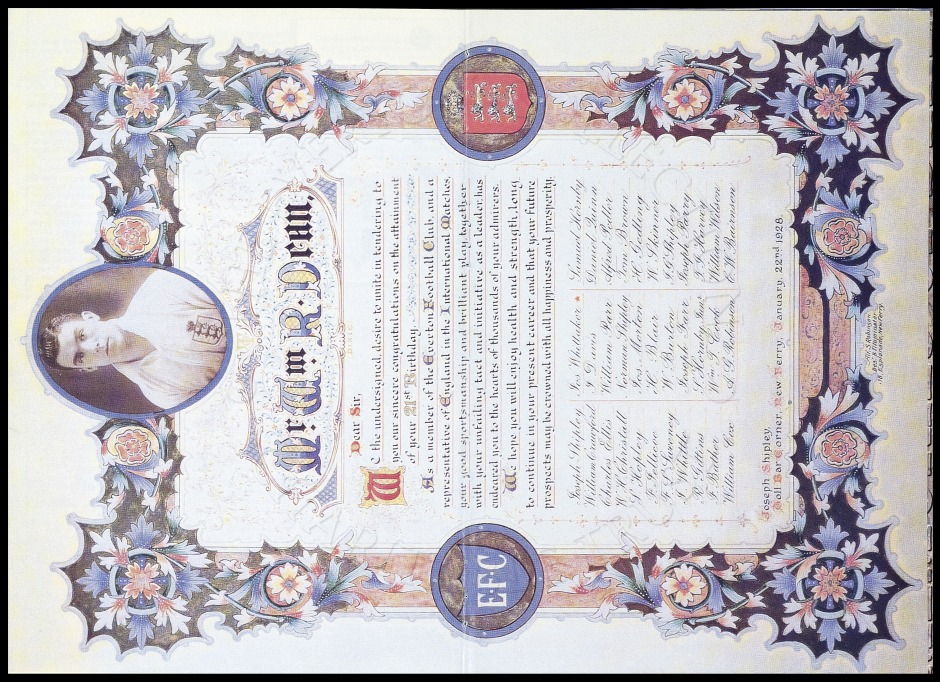 Mr. Wm. R. Dean,
Dear Sir,
We the undersigned, desire to unite in tendering to
you our sincere congratulations on the attainment
of your 21st Birthday.
As a member of the Everton Football Club, and a
representative of England in the International Matches,
your good sportsmanship and brilliant play, together
with your unfailing tact and initiative as a leader, has
endeared you to the hearts of thousands of your admirers.
We hope you will enjoy health and strength, long
to continue in your present career and that your future
prospects may be crowned with all happiness and prosperity.
Joseph Shipley
William Crawford
Charles Ellis
Jos Whittaker
J. Davis
William Parr
Norman Shipley
Jos. Morton
H. Blair
W. Burton
Joseph Farr
Wm. T. Cook
A. G. Robinson
Samuel Hornby
Daniel Quinn
Alfred Potter
Tom Brown
H. Codling
W. Skinner
Joseph Perry
William Wilson
William Cox
Joseph Shipley,
Toll Bar Corner, New Ferry, January, 22nd 1928.
EFC